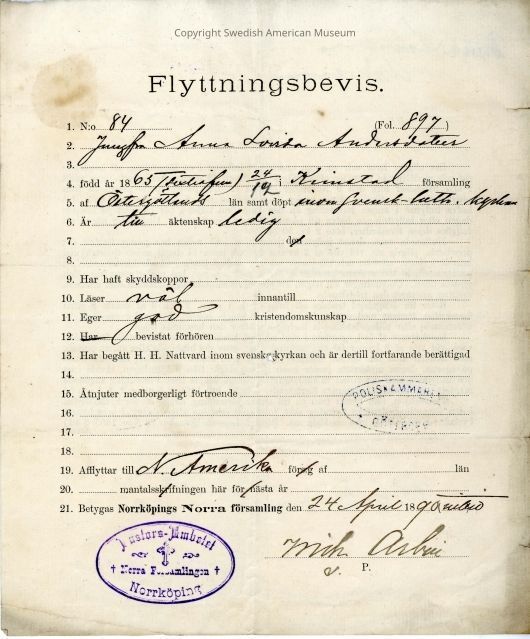 Copyright Swedish American Museum
Flyttningsbevis.
1. N:o 84 (Fol. 897)
2. Jungfru Anna Lovisa Andersdotter
3.
4. född år 1865 (sextifem) 24/12 i Krinstad församling
5. af Östergötlands län samt döpt inom svensk-luth. kyrkan
6. Är till äktenskap ledig
7. den
8.
9. Har haft skyddskoppor
10. Läser väl innantill
11. Eger god kristendomskunskap
12. Har bevistat förhören
13. Har begått H. H. Nattvard inom svenska kyrkan och är dertill fortfarande berättigad
14.
15. Åtnjuter medborgerligt förtroende
POLISKAMMAREN
GÖTEBORG
16.
17.
18.
19. Afflyttar till N. Amerika förs:g af län
20. mantalsskrifningen här för nästa år
21. Betygas Norrköpings Norra församling den 24 April 1890
Pastors-Embetet
Norra Församlingen
Norrköping
v. P.